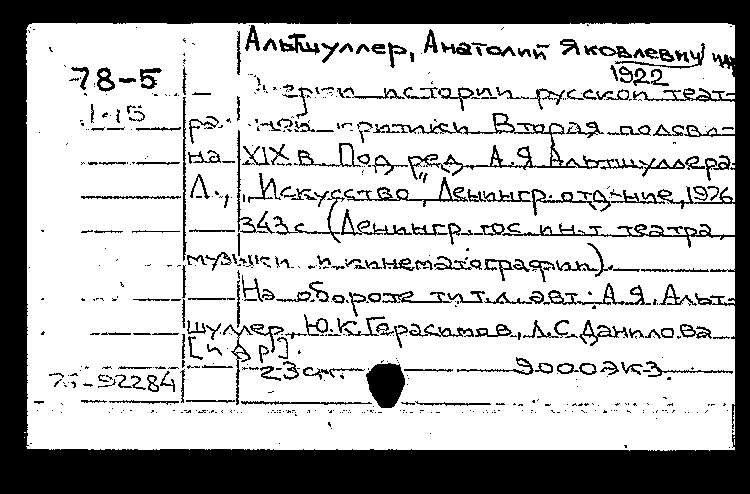 Альтшуллер, Анатолий Яковлевич
78-5
1922
1-15
Очерки истории русской театральной критики Вторая полови-
на XIX в. Под ред. А.Я Альтшуллера
Л., „Искусство", Ленингр. отд-ние, 1976
343с (Ленингр. гос. ин-т театра,
музыки и кинематографии).
На обороте тит.л. авт: А.Я. Альт-
шуллер, Ю.К. Герасимов, Л.С. Данилова
[и др].
23см. 9000экз.
75-92284